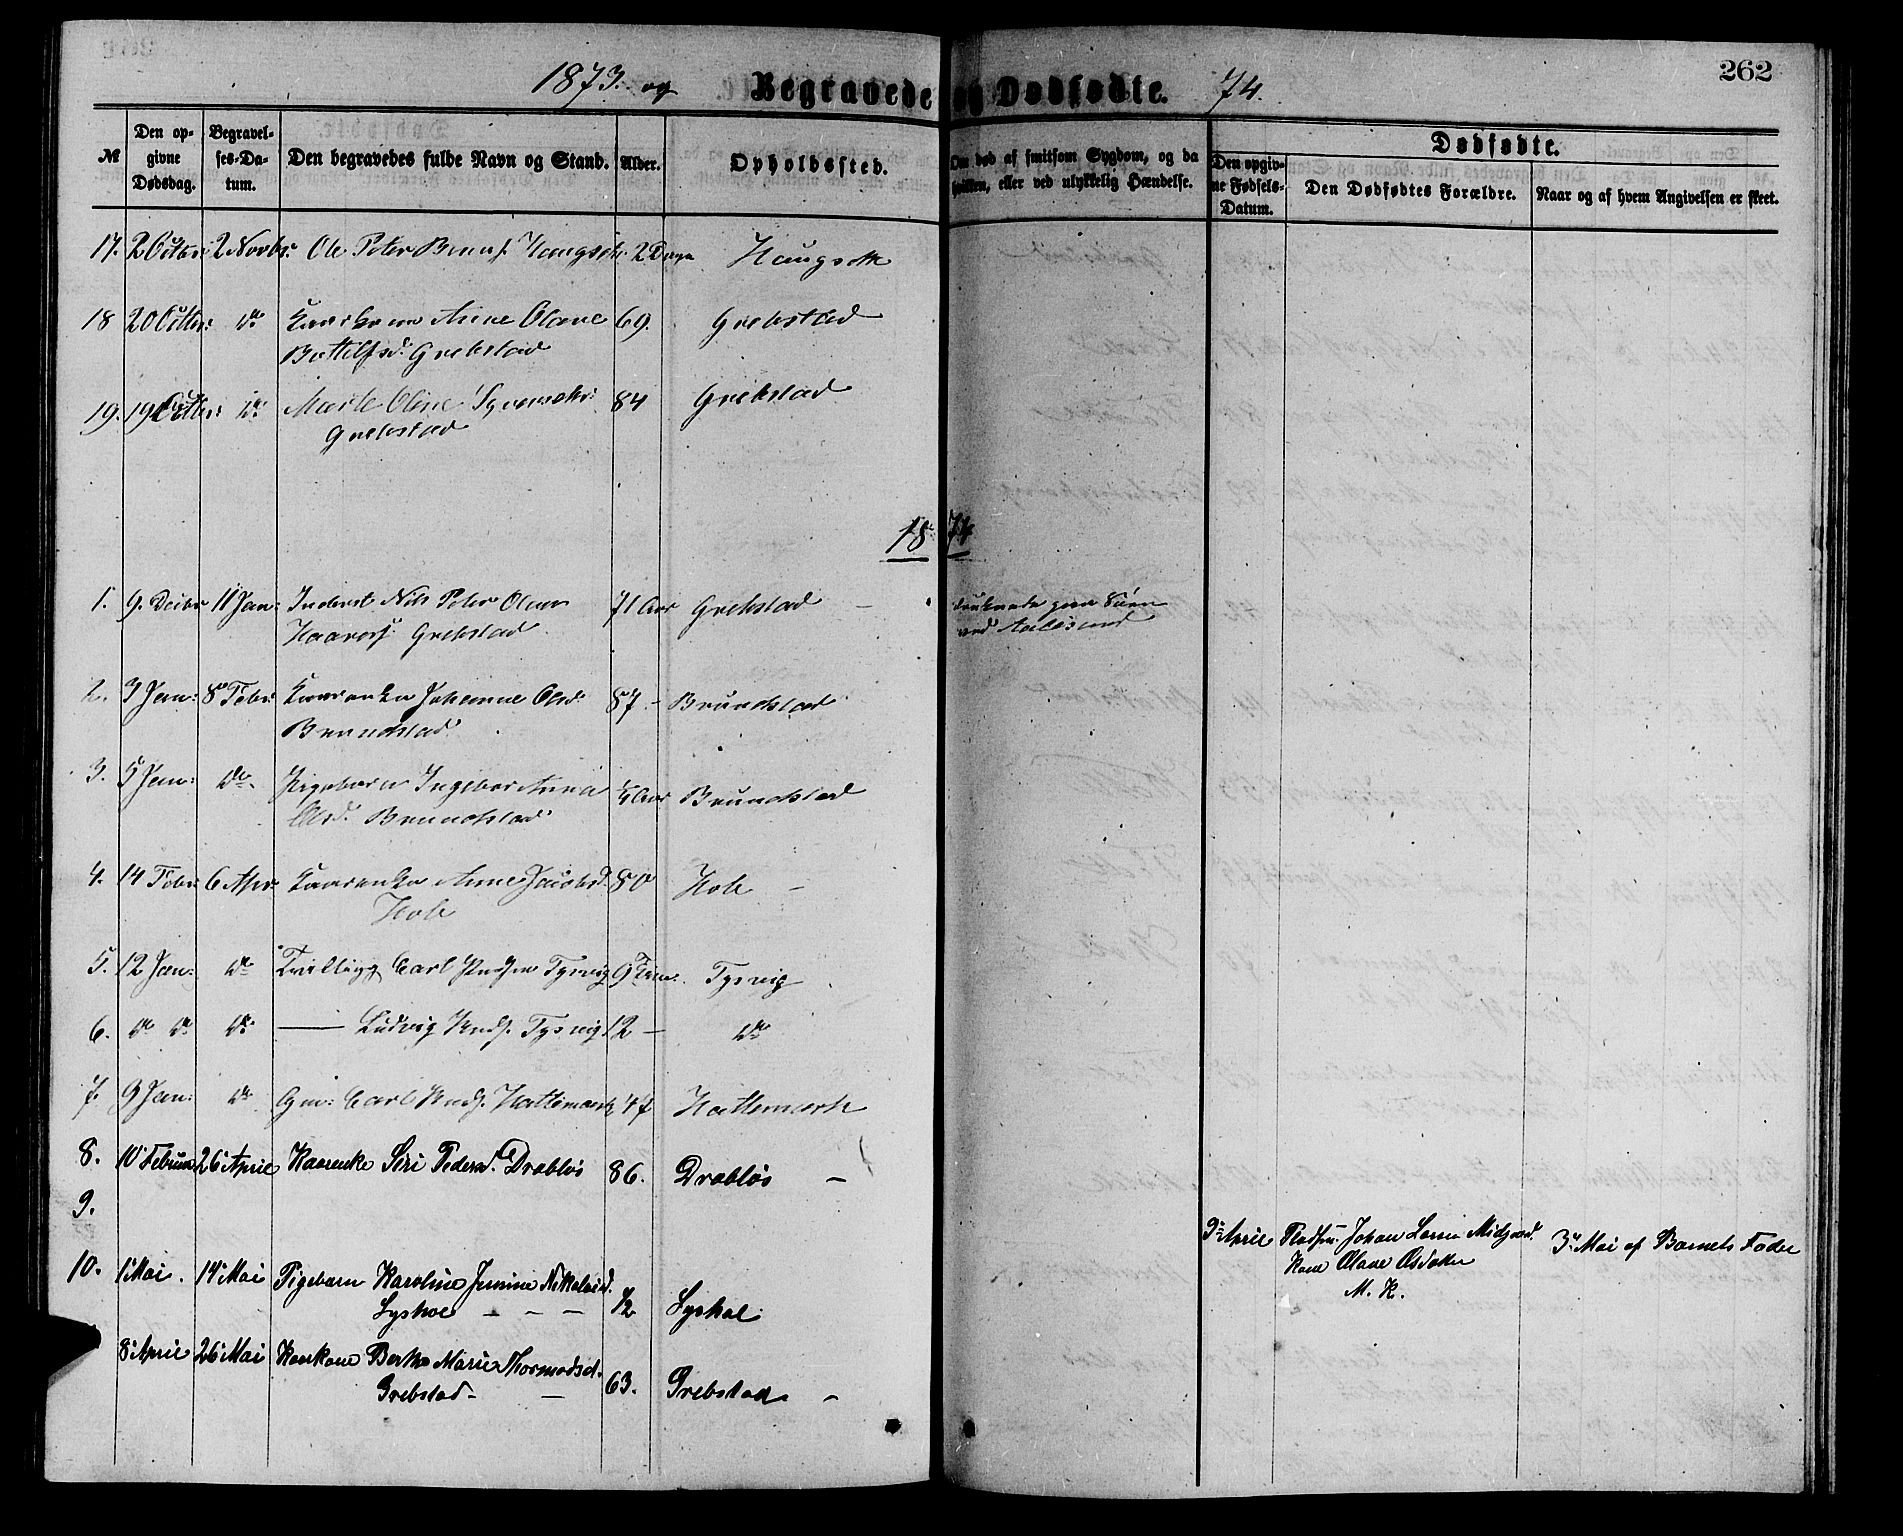 262
1873. og Begravede og Dødfødte. 74.
№ Den opgivne Dødsdag. Begravelses-Datum. Den begravedes fulde Navn og Stand. Alder. Opholdssted. Om død af smitsom Sygdom, og da hvilken, eller ved ulykkelig Hændelse. Den opgivne Fødsels-Datum. Dødfødte. Den Dødfødtes Forældre. Naar og af hvem Angivelsen er skeet.
17. 2 Octbr: 2 Novbr. Ole Peter 2 Dage
18 20 Octbr: do Anne Olave 69. Grebstad
Grebstad
19. 19 Octbr: do Marte Oline 84 Grebstad
Grebstad
18 74
1. 9. Decbr 11 Jan: Inderst Nils Peter Olaus 71 Aar Grebstad –
Grebstad ved Aalesund
2. 3 Jan: 8de Febr: Kaarenke Johanne Olsd. 87 – Brundstad
Brundstad
3. 5 Jan: do Pigebarn Ingebor Anna Aar Brundstad
Olsd. Brundstad
4. 14 Febr: 6 Apr. Kaarenke Anne Jacobsd. 80 Hole –
Hole
5. 12 Jan: do Tvilling Carl Knudsen Tysvig 9 Tysvig
6. do do do — Ludvig Knds. Tysvig 12 – do
7. 9 Jan: do Gm: Carl Knds. Hattemark 47 Hattemark
8. 10 Februar 26 April Kaarenke Siri Pedersd. Drabløs 86. Drabløs –
9.
9de April Pladsm. Johan Larsen Midgaard 3de Mai af Barnets Fader
Kone Olave Olsdatter
M. K.
10. 1 Mai. 14de Mai Pigebarn Karoline Jensine Nikolaisd. 1/2 Lyshol
Lyshol – – –
8de April 26 Mai Kaarkone Berthe Marie Thormodsd. 63. Grebstad –
Grebstad – –